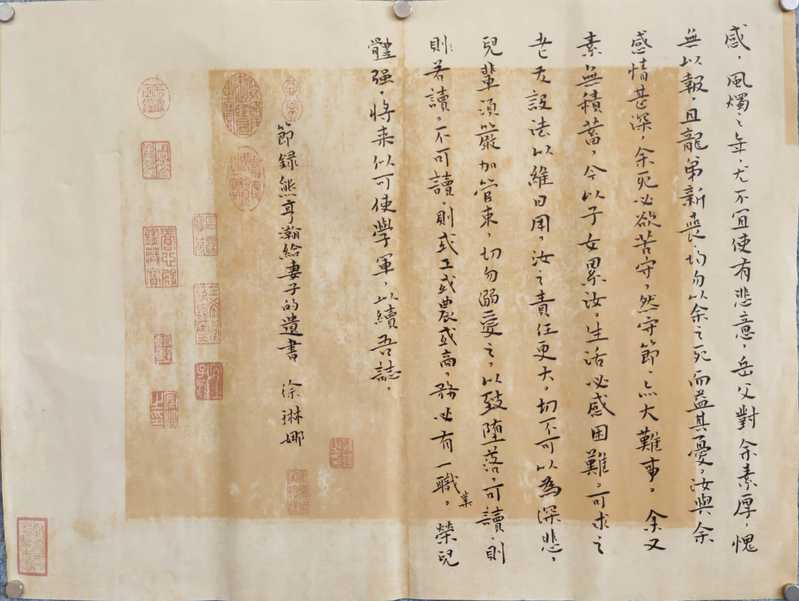 感，風燭之年，尤不宜使有悲意，岳父對余素厚，愧
無以報，且龍弟新喪，均勿以余之死而益其憂，汝與余
感情甚深，余死必欲苦守，然守節，亦大難事。余又
素無積蓄，今以子女累汝，生活必感困難，可求之
老友設法以維日用，汝之責任更大，切不可以為深悲，
兒輩須嚴加管束，切勿溺愛之，以致墮落，可讀，則
則若讀，不可讀，則或工或農或商，務必有一職業。榮兒
體强，將來似可使學軍，以續吾誌。
節録熊亨瀚給妻子的遺書 徐琳娜